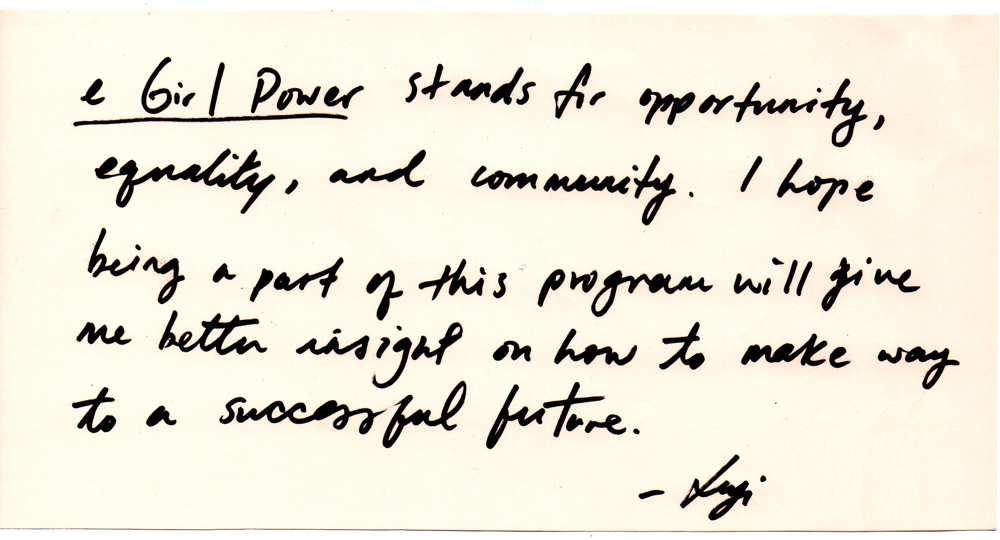 e Girl Power stands for opportunity,
equality, and community. I hope
being a part of this program will give
me better insight on how to make way
to a successful future.
-